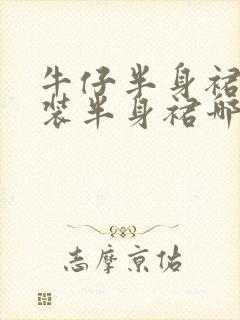 牛仔半身裙
装半身裙哪
志摩京佑